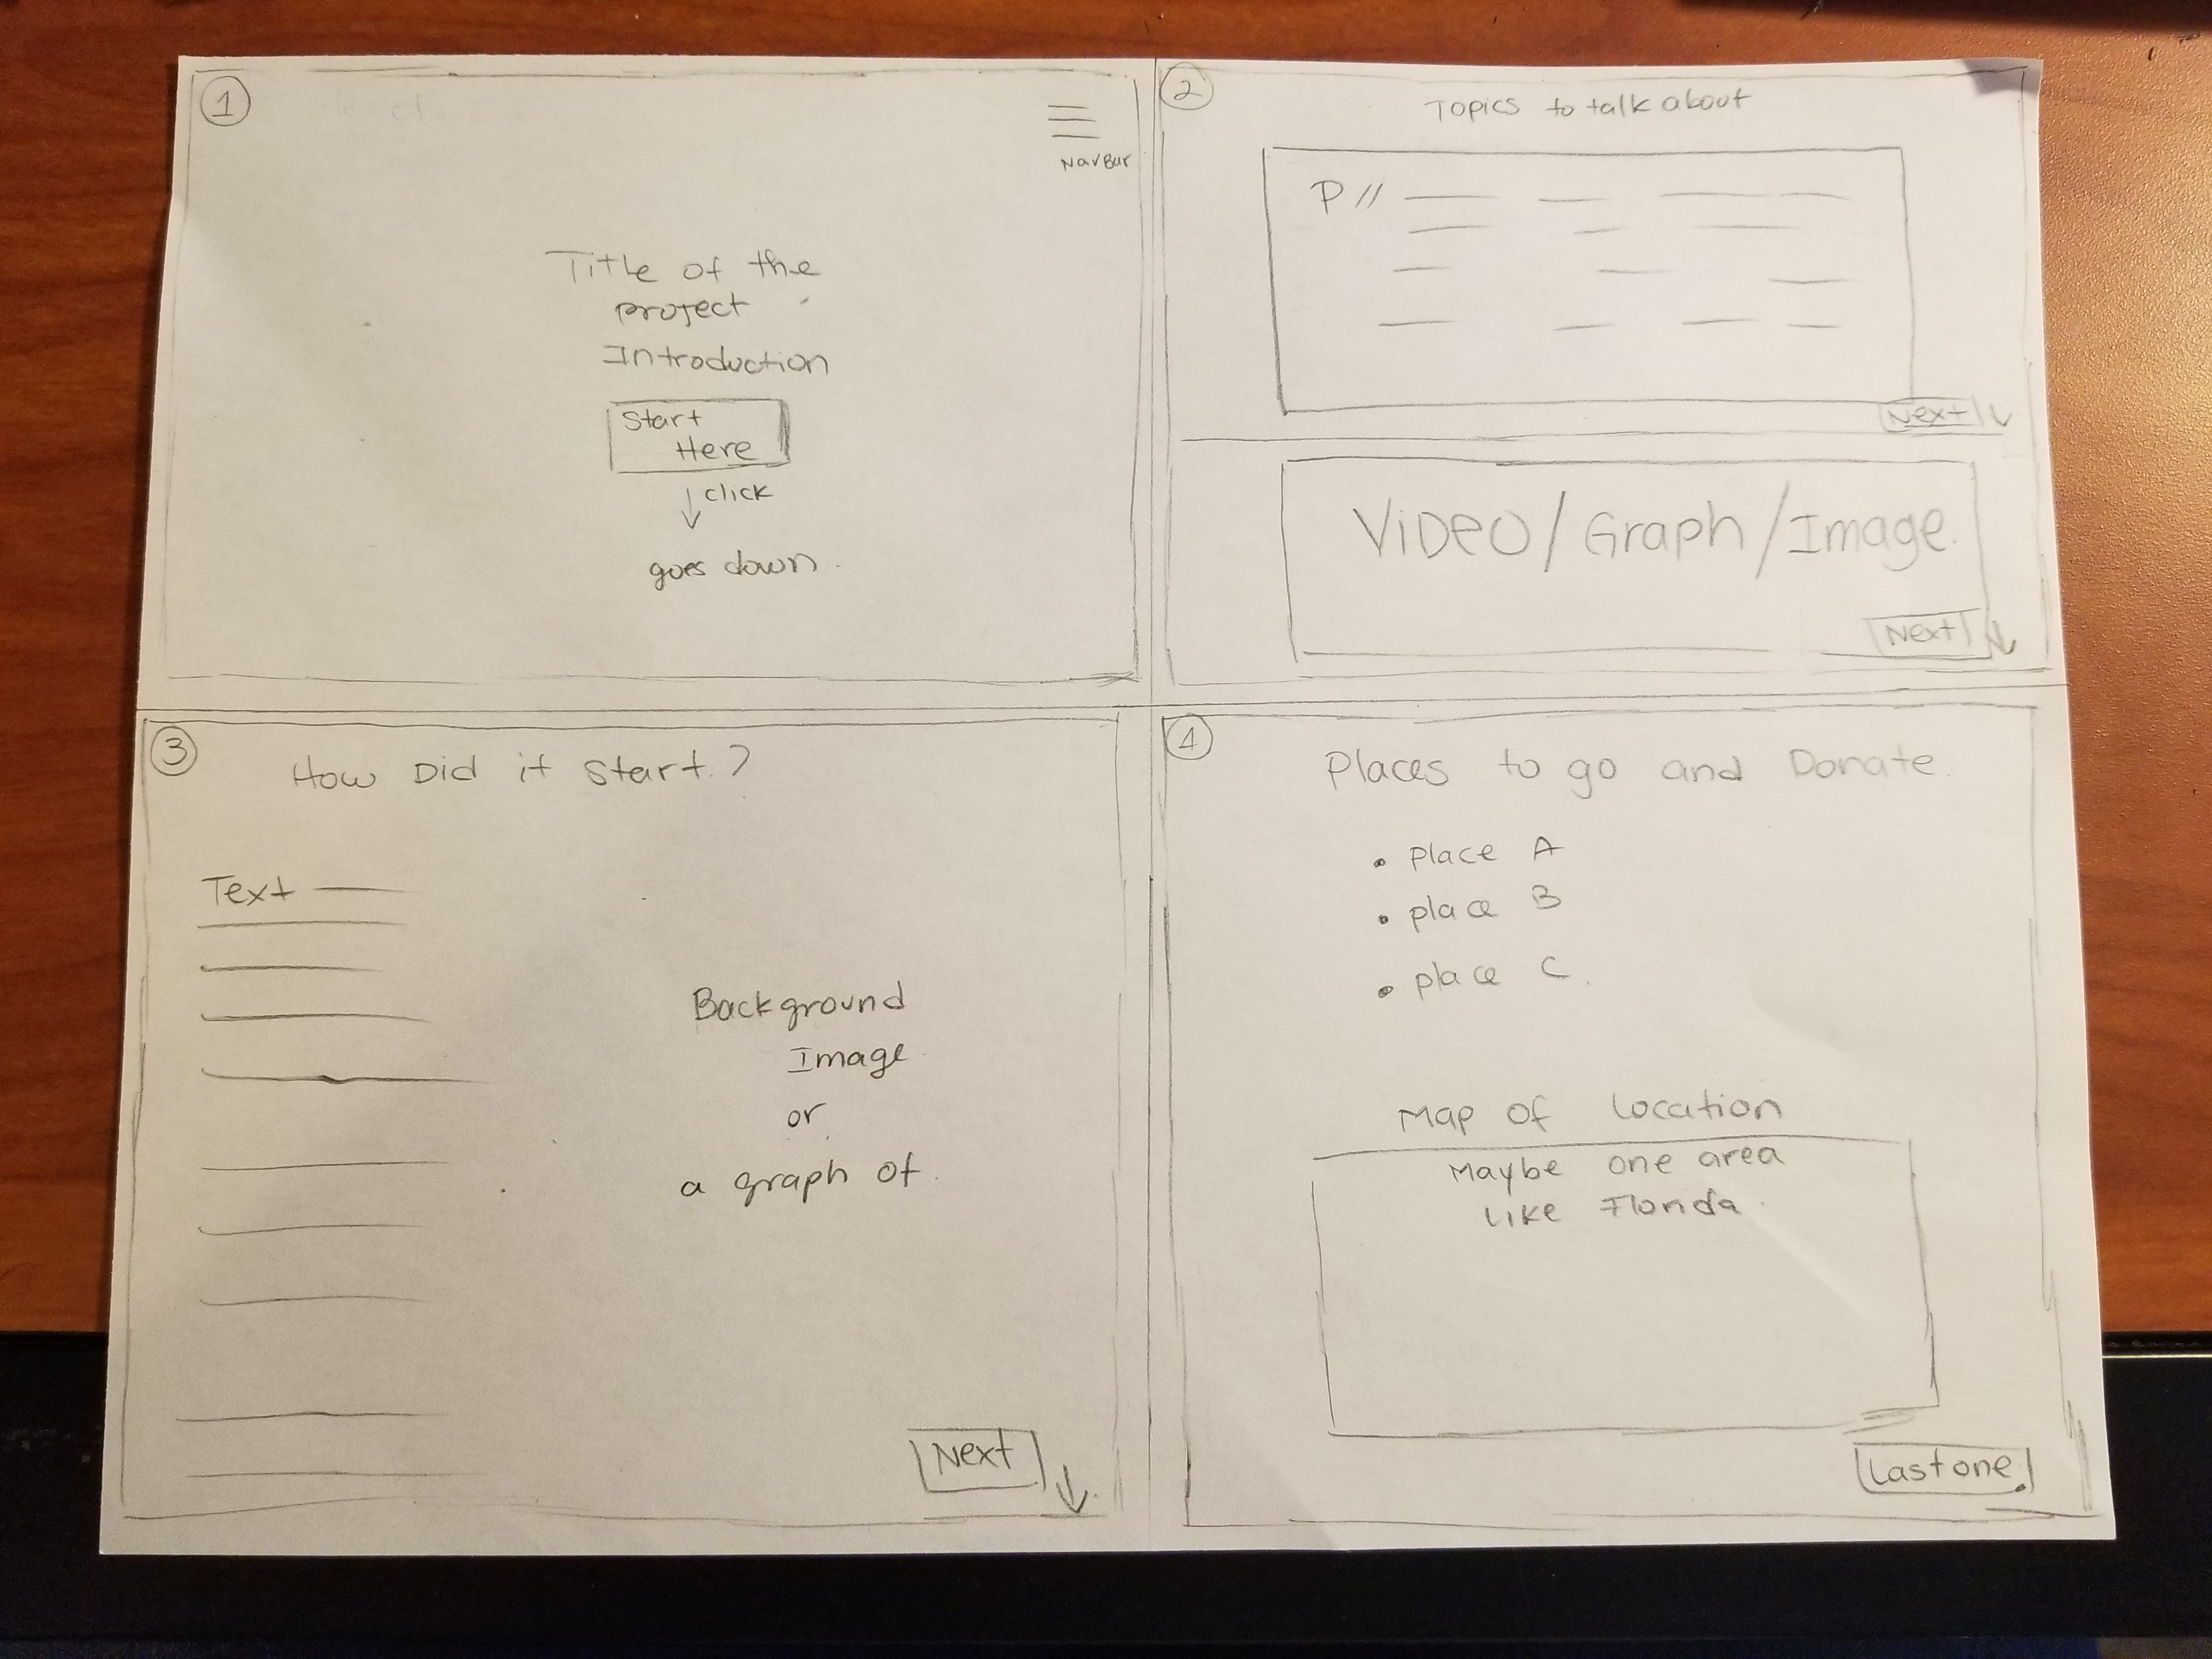 1
NavBar
Title of the
project
Introduction
Start
Here
click
goes down.
2
Topics to talk about
P //
Next
Video/Graph/Image.
Next
3
How Did it Start.?
Text
Background
Image
or
a graph of.
Next
4
Places to go and Donate.
• place A
• place B
• place C.
Map of Location
Maybe one area
Like Florida.
Last one